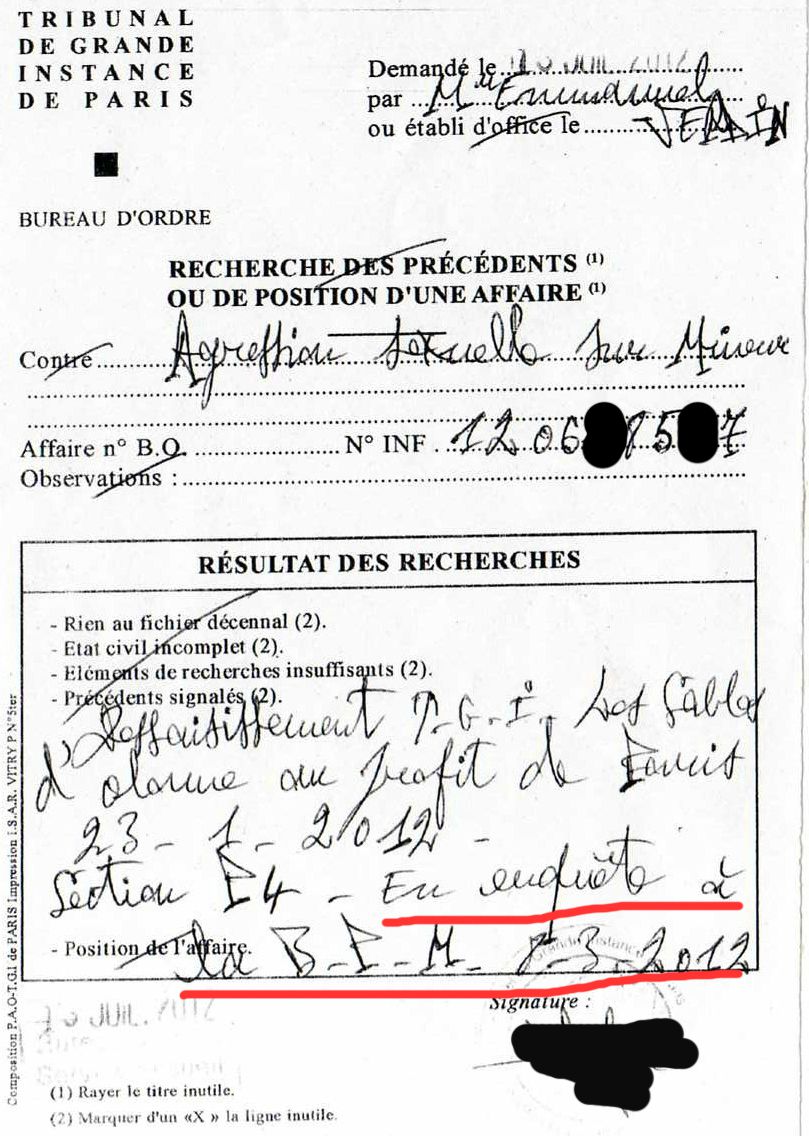 TRIBUNAL
DE GRANDE
INSTANCE
DE PARIS
BUREAU D'ORDRE
Demandé le 10 JUIL. 2012
par Mme Emmanuel
ou établi d'office le VERDIN
RECHERCHE DES PRÉCÉDENTS (1)
OU DE POSITION D'UNE AFFAIRE (1)
Contre Agression sexuelle sur Mineur
Affaire n° B.O. N° INF. 12 06 85 7
Observations :
RÉSULTAT DES RECHERCHES
- Rien au fichier décennal (2).
- Etat civil incomplet (2).
- Eléments de recherches insuffisants (2).
- Précédents signalés (2).
Dessaisissement T.G.I. Les Sables
d'olonne au profit de Paris
23-1-2012-
Section P4 - En enquête à
- Position de l'affaire.
la B-P-M- 8-3-2012
Grande Instance
Signature :
JUIL. 2012
(1) Rayer le titre inutile.
(2) Marquer d'un «X » la ligne inutile.
Composition P.A.O-T.G.I de PARIS Impression I.S.A.R. VITRY P N°5ter